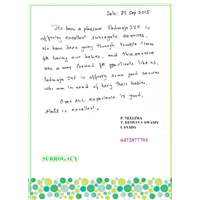 Date: 25 Sep 2015
Its been a pleasure Padmaja IVF is
offering excellent surrogate services.
We have been going through trouble times
for having our babies, and this service
was a way forward for people like us.
Padmaja IVF is offering some good services
who are in need of having their babies.
Over all experience is good,
staff is excellent.
P. NEELIMA
T. KESHAVA SWAMY
CANADA
6472877793
SURROGACY